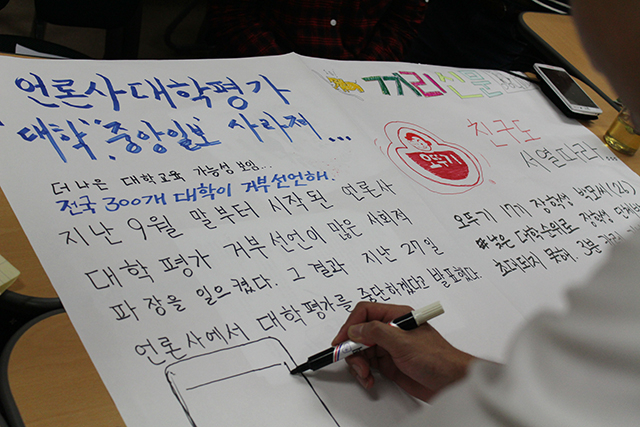 언론사 대학평가
"대학" 중앙일보 사라져...
더 나은 대학교육 가능성 보인...
전국 300개 대학이 거부선언해.
지난 9월 말부터 시작된 언론사
대학 평가 거부선언이 많은 사회적
파장을 일으켰다. 그 결과 지난 27일
언론사에서 대학평가를 중단하겠다고 발표했다.
친구도
서열따라...
오뚜기
오뚜기
낮은 대학순위로
초대되지 못해.